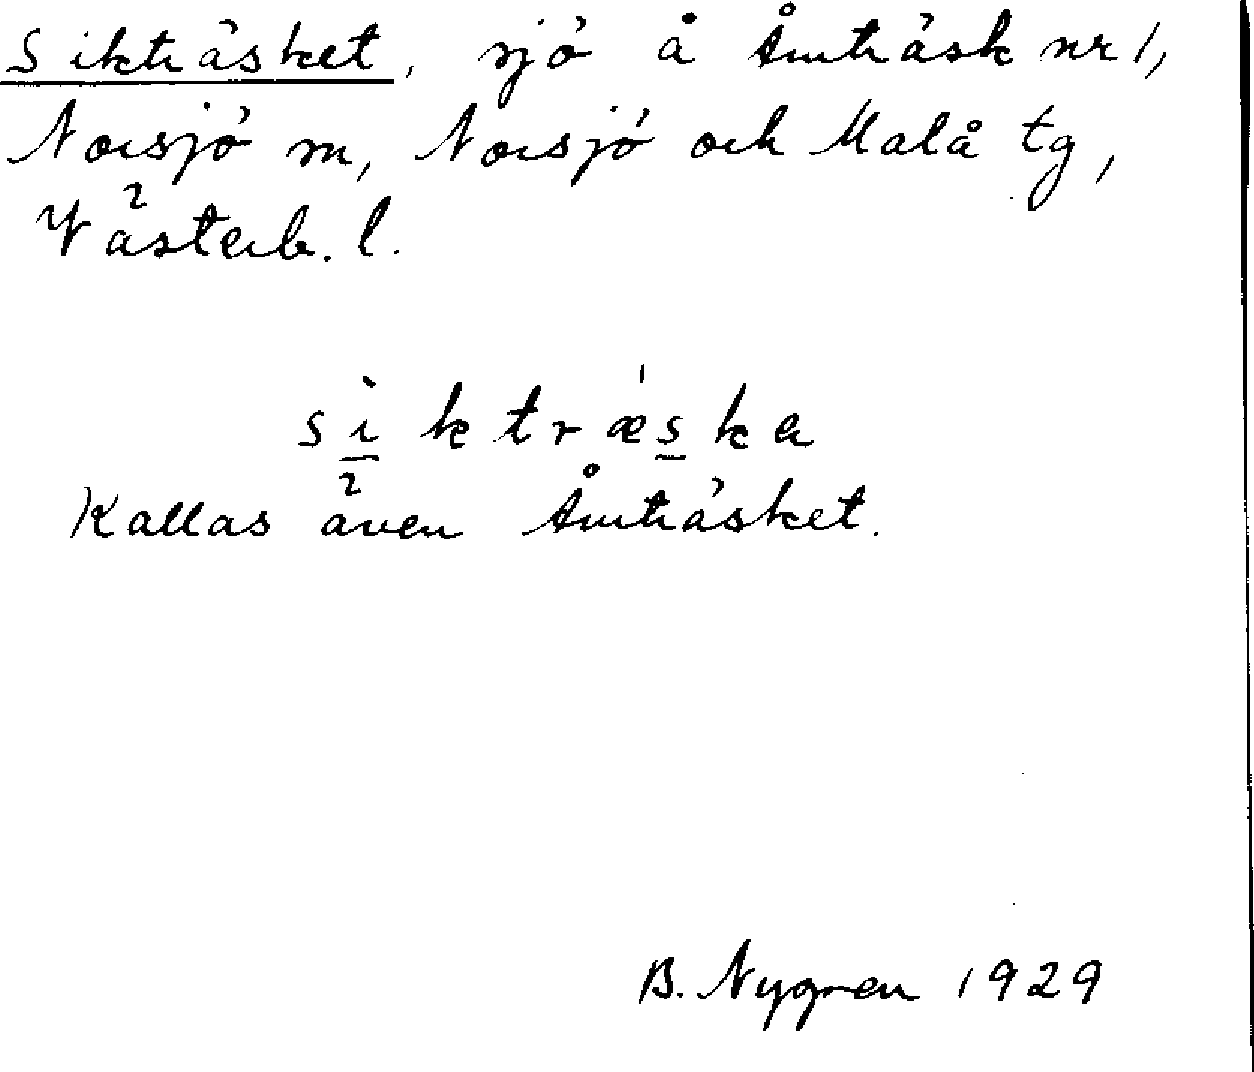 Sikträsket, sjö å Åmträsk nr 1,
Norsjö m, Norsjö och Malå tg,
Västerb. l.
sìktræ´ska
Kallas även Åmträsket.
B. Nygren 1929